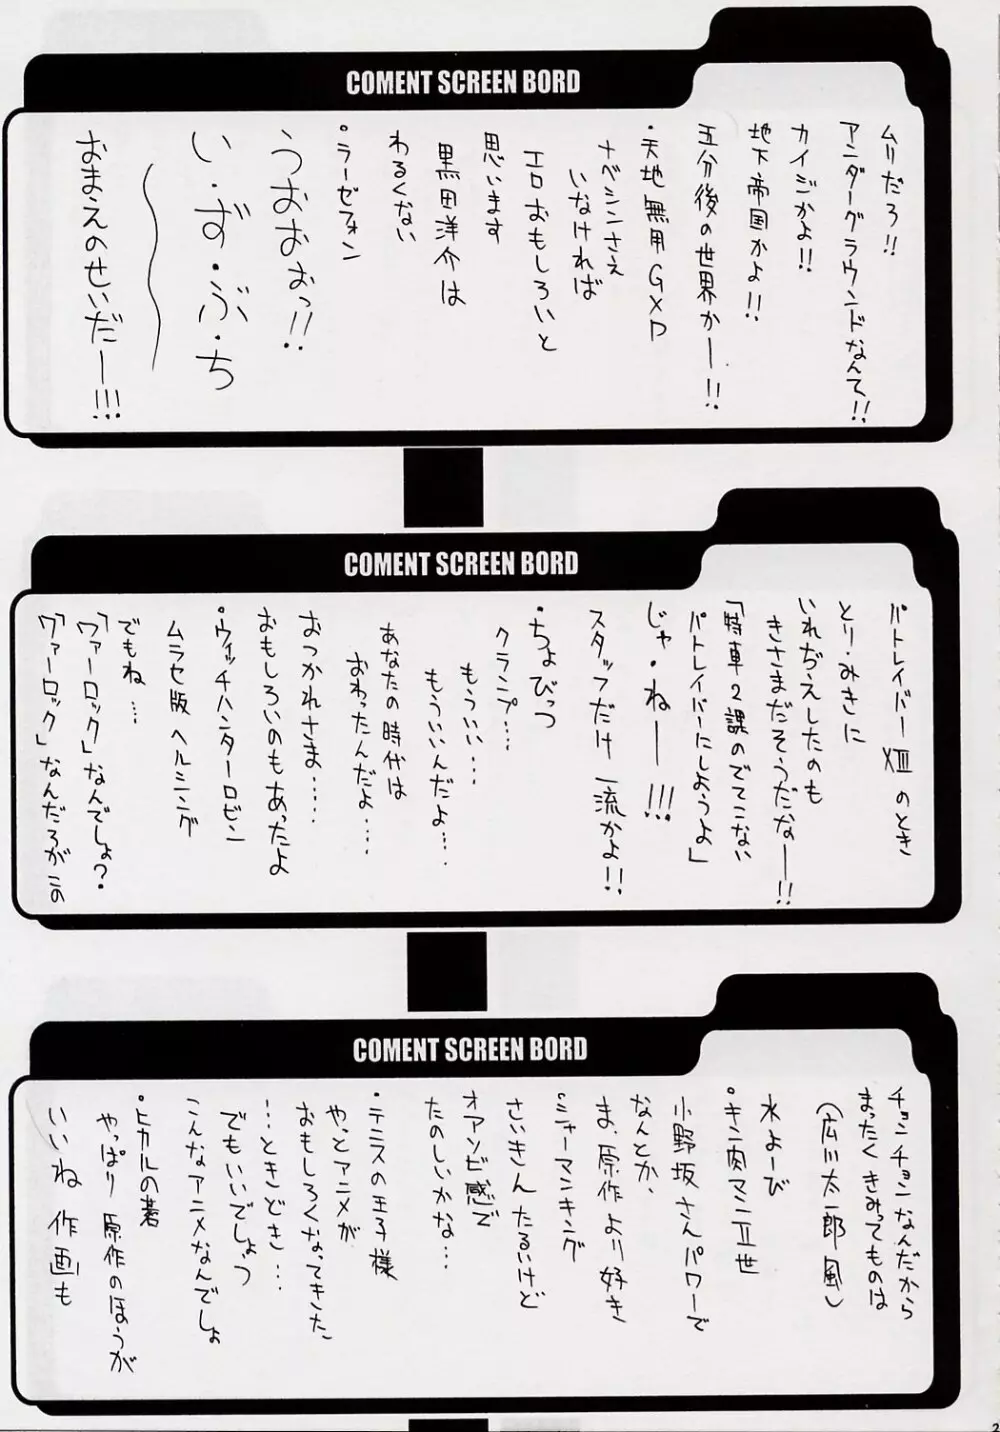 COMENT SCREEN BORD
ムリだろ!!
アンダーグラウンドなんて!!
カイジかよ!!
地下帝国かよ!!
五分後の世界かー!!
・天地無用GXP
ナベシンさえ
いなければ
エロおもしろいと
思います
黒田洋介は
わるくない
・ラーゼフォン
うおおぉっ!!
い・ず・ぶ・ち
おまえのせいだー!!!
COMENT SCREEN BORD
パトレイバーXIIIのとき
とり・みきに
いれぢえしたのも
きさまだそうだなー!!
「特車2課のでてこない
パトレイバーにしようよ」
じゃ・ねー!!!
スタッフだけ一流かよ!!
・ちょびっつ
クランプ…
もういい…
もういいんだよ…
あなたの時代は
おわったんだよ…
おつかれさま……
おもしろいのもあったよ
・ウィッチハンターロビン
ムラセ版 ヘルシング
でもね…
「ワァーロック」なんでしょ?・
「ワァーロック」なんだろがこの
COMENT SCREEN BORD
チョンチョンなんだから
まったくきみってものは
(広川太一郎風)
水よーび
・キン肉マンII世
小野坂さんパワーで
なんとか、
ま、原作より好き
・シャーマンキング
さいきんたるいけど
オアソビ感で
たのしいかな…
・テニスの王子様
やっとアニメが
おもしろくなってきた、
…ときどき…
でもいいでしょっ
こんなアニメなんでしょ
・ヒカルの碁
やっぱり原作のほうが
いいね 作画も
2